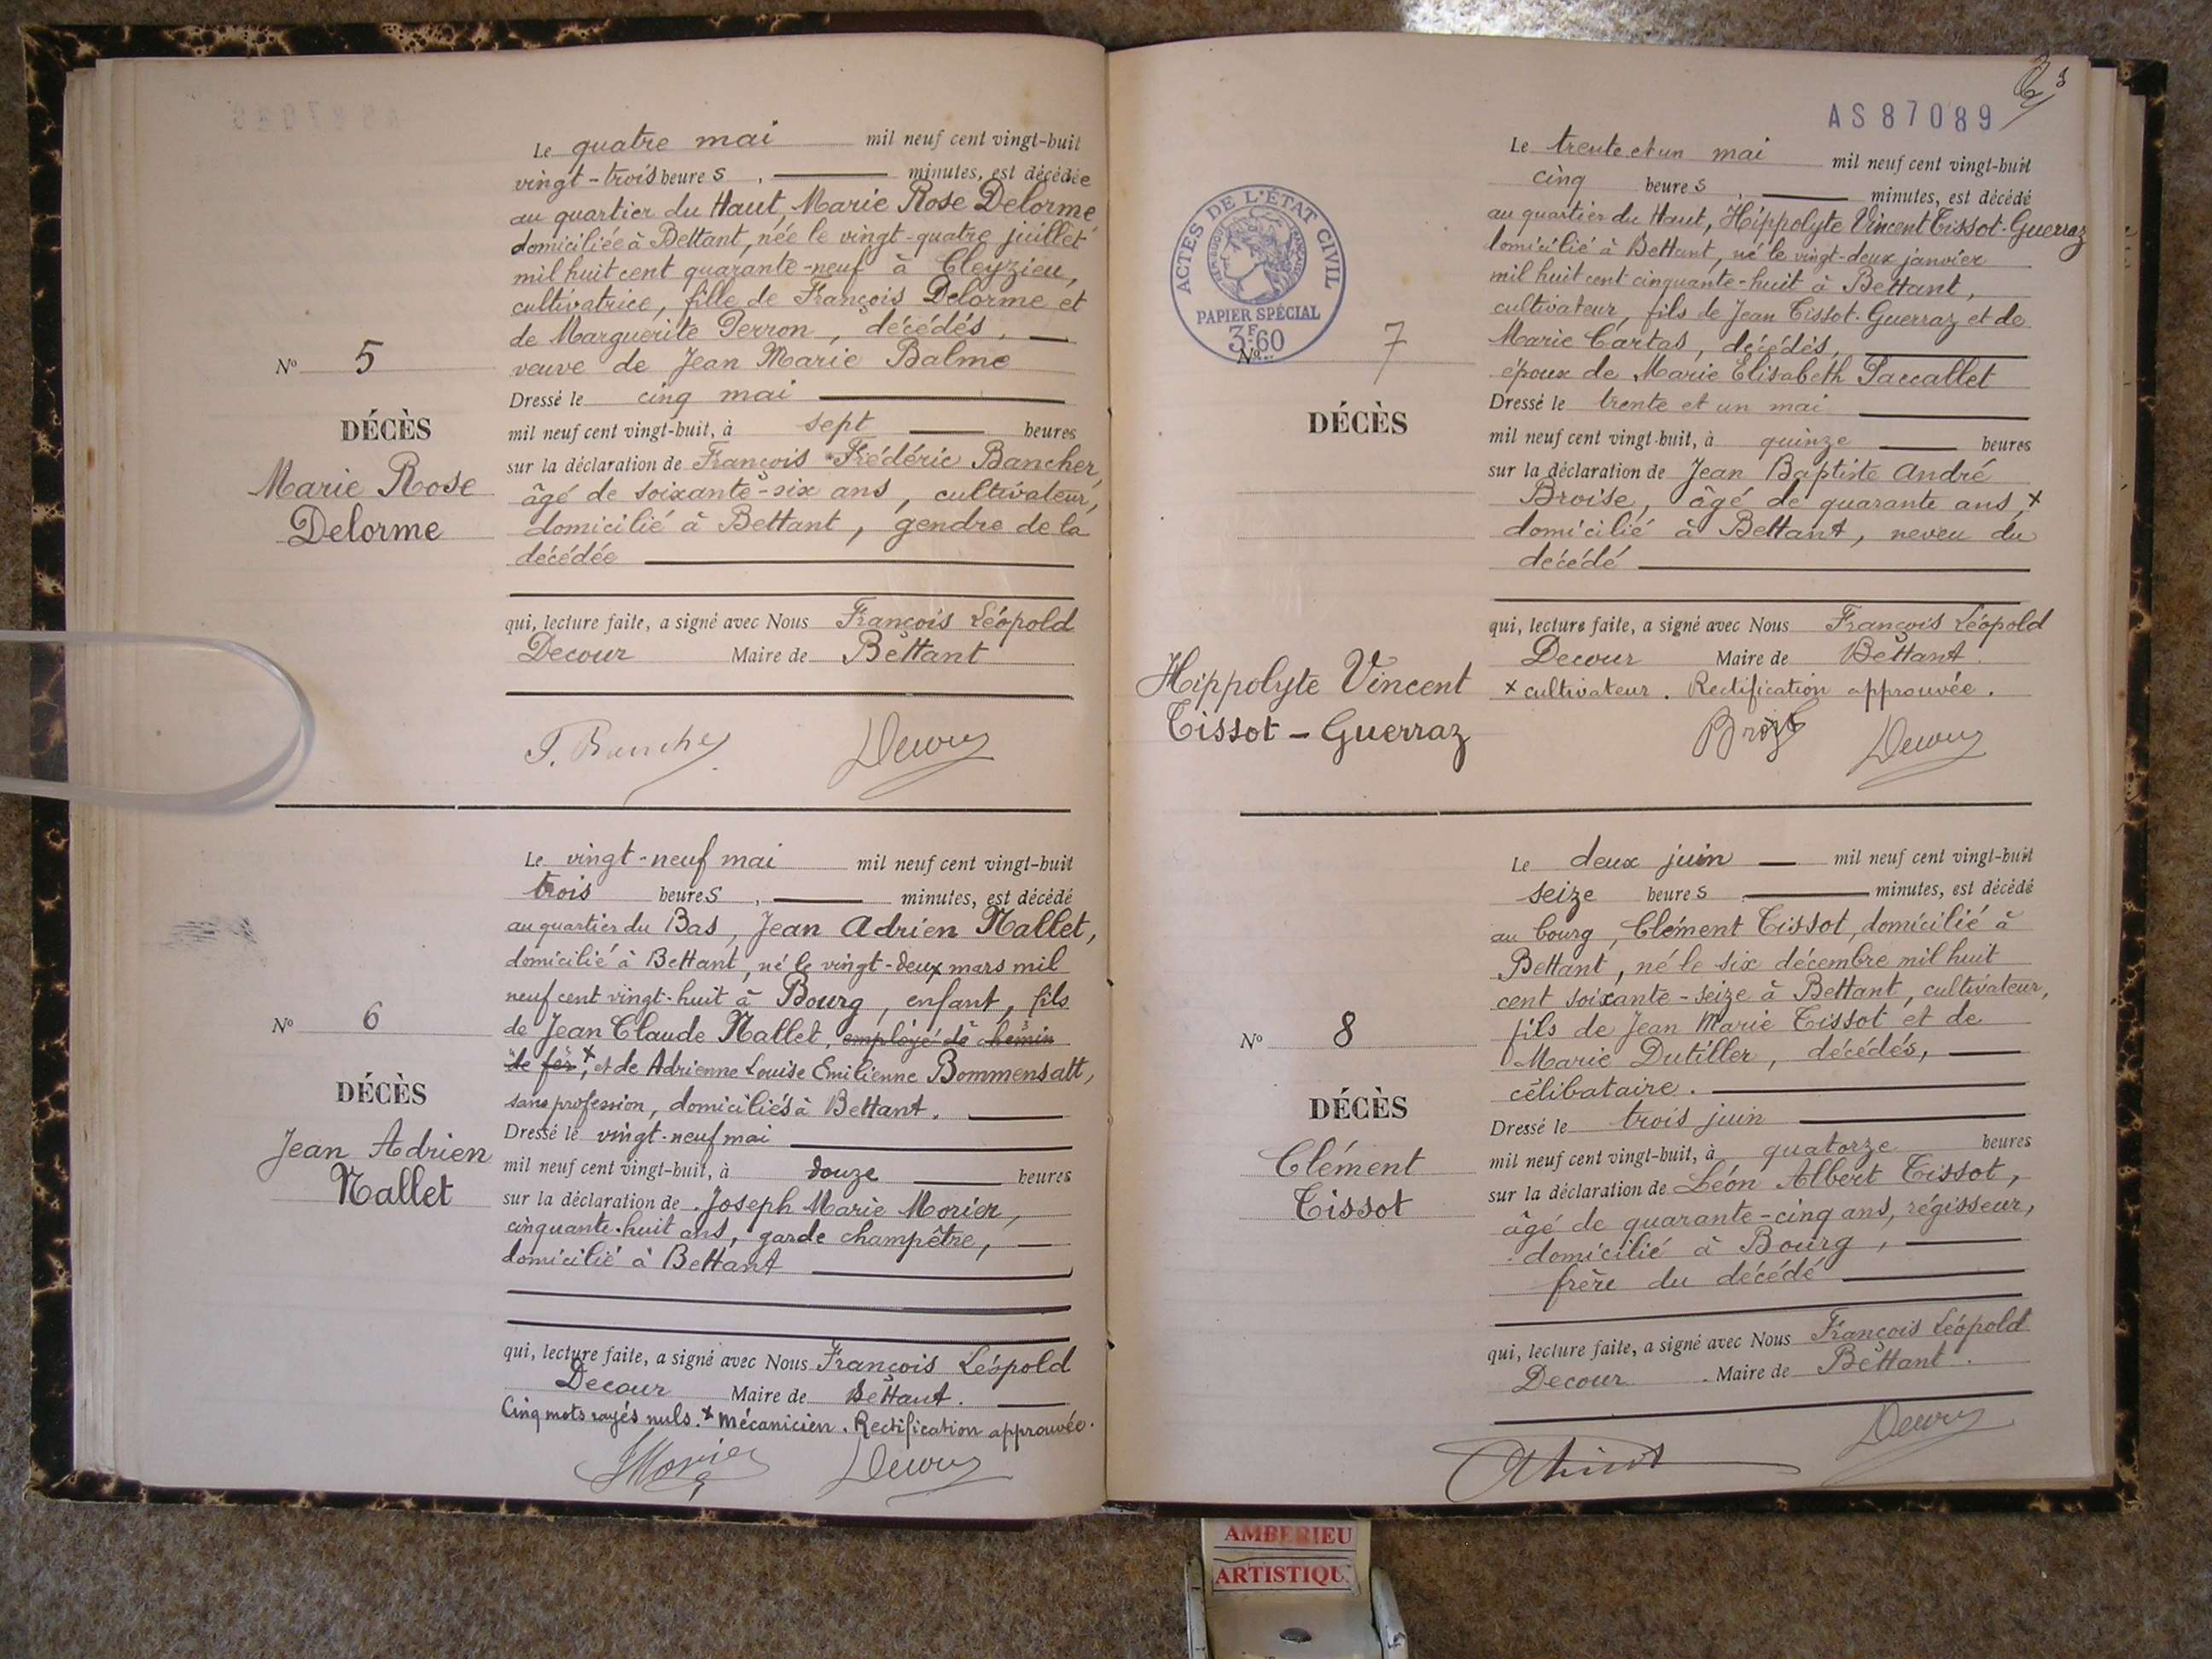 Le quatre mai mil neuf cent vingt-huit
vingt-trois heures, minutes, est décédée
au quartier du Haut, Marie Rose Delorme
domiciliée à Bettant, née le vingt-quatre juillet
mil huit cent quarante-neuf à Cleyzieu,
cultivatrice, fille de François Delorme et
de Marguerite Perron, décédés,
veuve de Jean Marie Balme
Nº 5
DÉCÈS
Marie Rose
Delorme
Dressé le cinq mai
mil neuf cent vingt-huit, à sept heures
sur la déclaration de François Frédéric Bancher,
âgé de soixante-six ans, cultivateur,
domicilié à Bettant, gendre de la
décédée
qui, lecture faite, a signé avec Nous François Léopold
Decour Maire de Bettant
F. Bancher Decour
Le vingt-neuf mai mil neuf cent vingt-huit
trois heures, minutes, est décédé
au quartier du Bas, Jean Adrien Nallet,
domicilié à Bettant, né le vingt-deux mars mil
neuf cent vingt-huit à Bourg, enfant, fils
de Jean Claude Nallet, employé de chemin
de fer x, et de Adrienne Louise Emilienne Bommensatt,
sans profession, domiciliés à Bettant.
Nº 6
DÉCÈS
Jean Adrien
Nallet
Dressé le vingt-neuf mai
mil neuf cent vingt-huit, à douze heures
sur la déclaration de Joseph Marie Morier,
cinquante-huit ans, garde champêtre,
domicilié à Bettant
qui, lecture faite, a signé avec Nous François Léopold
Decour Maire de Bettant.
Cinq mots rayés nuls. x Mécanicien. Rectification approuvée.
JMorier Decour
AS87089
Le trente et un mai mil neuf cent vingt-huit
cinq heures, minutes, est décédé
au quartier du Haut, Hippolyte Vincent Tissot-Guerraz
domicilié à Bettant, né le vingt-deux janvier
mil huit cent cinquante-huit à Bettant,
cultivateur, fils de Jean Tissot-Guerraz et de
Marie Cartas, décédés,
époux de Marie Elisabeth Paccallet
ACTES DE L'ÉTAT CIVIL
RÉPUBLIQUE FRANÇAISE
PAPIER SPÉCIAL
3F60
Nº 7
DÉCÈS
Hippolyte Vincent
Tissot-Guerraz
Dressé le trente et un mai
mil neuf cent vingt-huit, à quinze heures
sur la déclaration de Jean Baptiste André
Broise, âgé de quarante ans, x
domicilié à Bettant, neveu du
décédé
qui, lecture faite, a signé avec Nous François Léopold
Decour Maire de Bettant.
x cultivateur. Rectification approuvée.
Broise Decour
Le deux juin mil neuf cent vingt-huit
seize heures minutes, est décédé
au bourg, Clément Tissot, domicilié à
Bettant, né le six décembre mil huit
cent soixante-seize à Bettant, cultivateur,
fils de Jean Marie Tissot et de
Marie Dutiller, décédés,
célibataire.
Nº 8
DÉCÈS
Clément
Tissot
Dressé le trois juin
mil neuf cent vingt-huit, à quatorze heures
sur la déclaration de Léon Albert Tissot,
âgé de quarante-cinq ans, régisseur,
domicilié à Bourg,
frère du décédé
qui, lecture faite, a signé avec Nous François Léopold
Decour Maire de Bettant.
Decour
AMBERIEU
ARTISTIQU